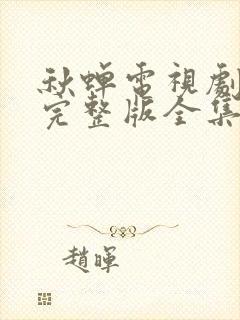 秋蝉電視劇
完整版全集
趙暉